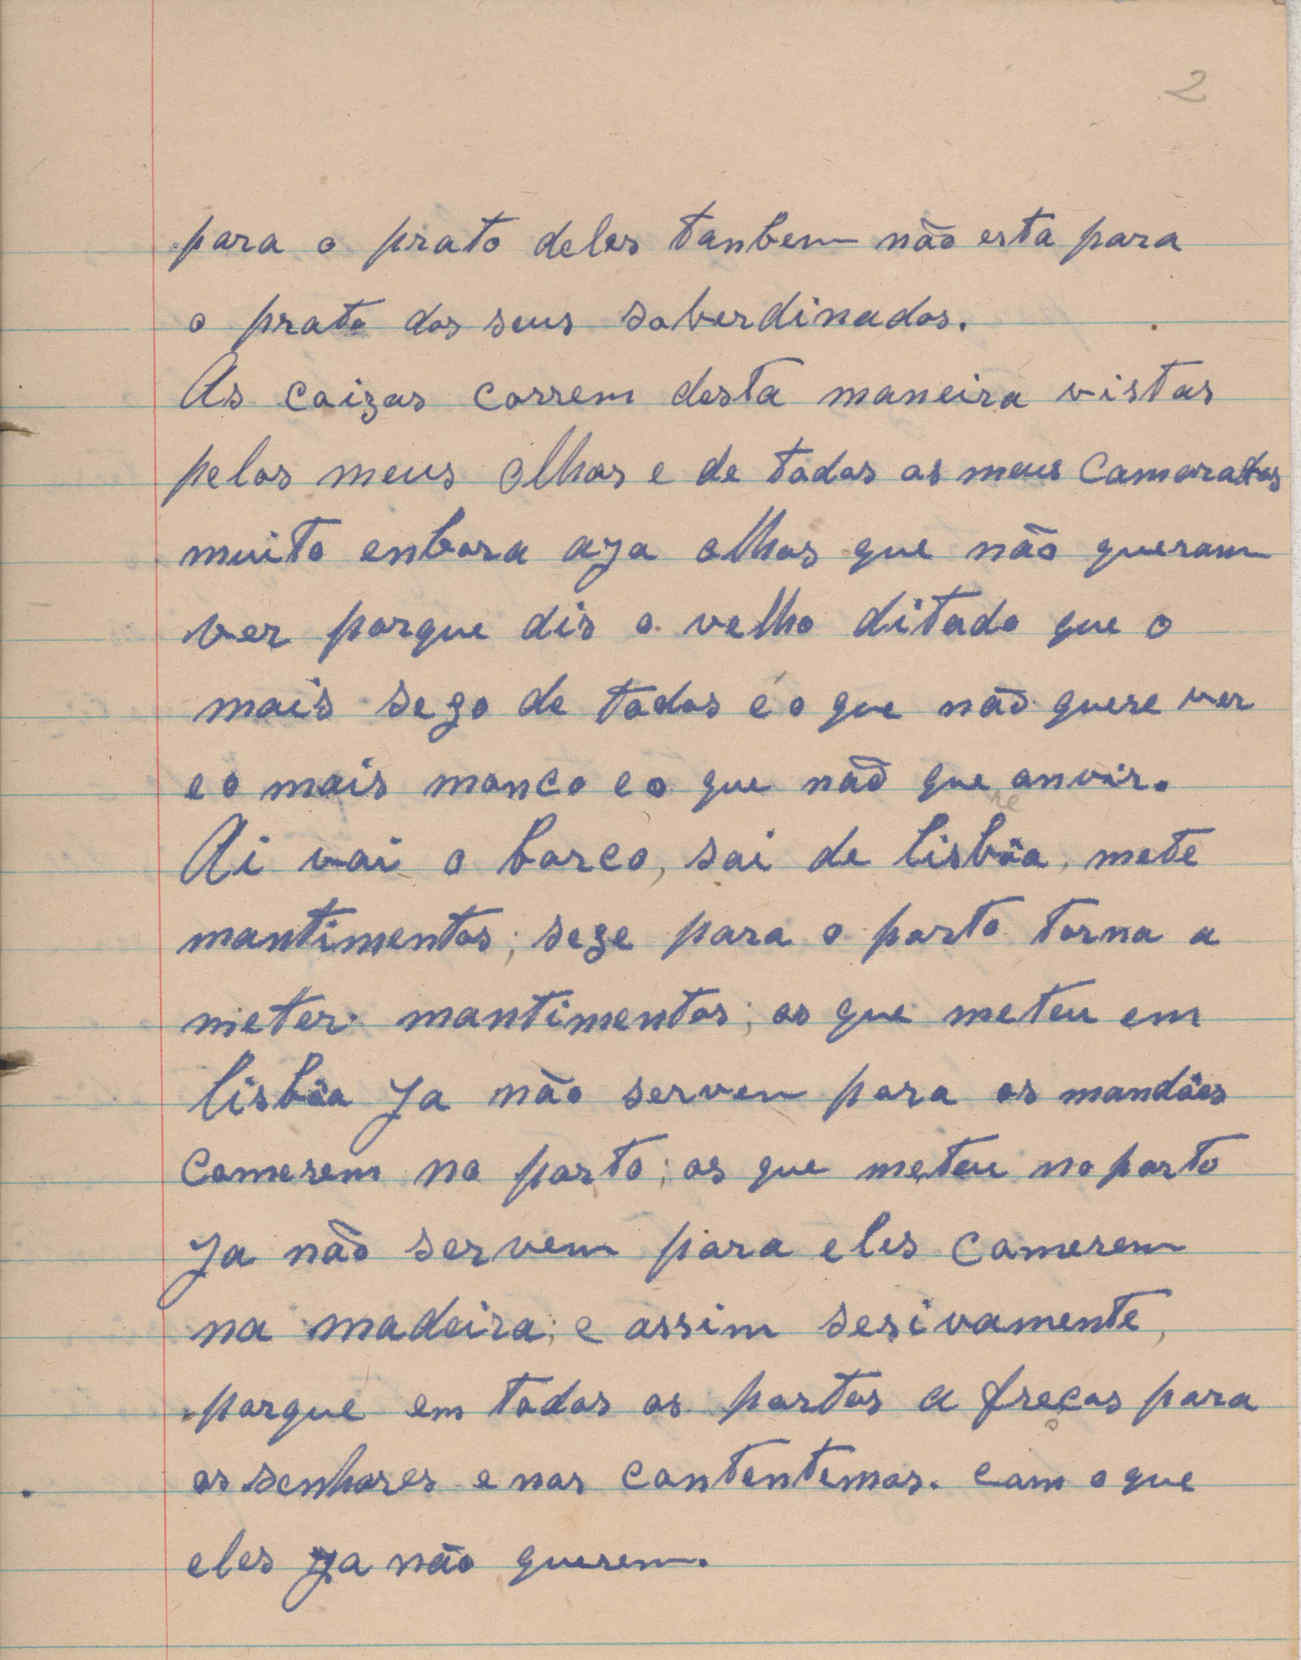 2
para o prato deles tanbem não esta para
o prato dos seus soberdinados.
As coizas correm desta maneira vistas
pelos meus olhos e de todos os meus Camaradas
muito enbora aja olhos que não queram
ver porque dis o velho ditado que o
mais sego de todos é o que não quere ver
e o mais monco e o que não que re onvir.
Ai vai o barco, sai de lisbôa, mete
mantimentos; sege para o porto torna a
meter mantimentos; os que meteu em
lisbôa Ja não serven para os mandões
Comerem no porto; os que meteu no porto
Ja não servem para eles comerem
na madeira; e assim sesivamente,
porque em todos os portos a frecos para
os senhores e nos contentemos. com o que
eles Ja não querem.